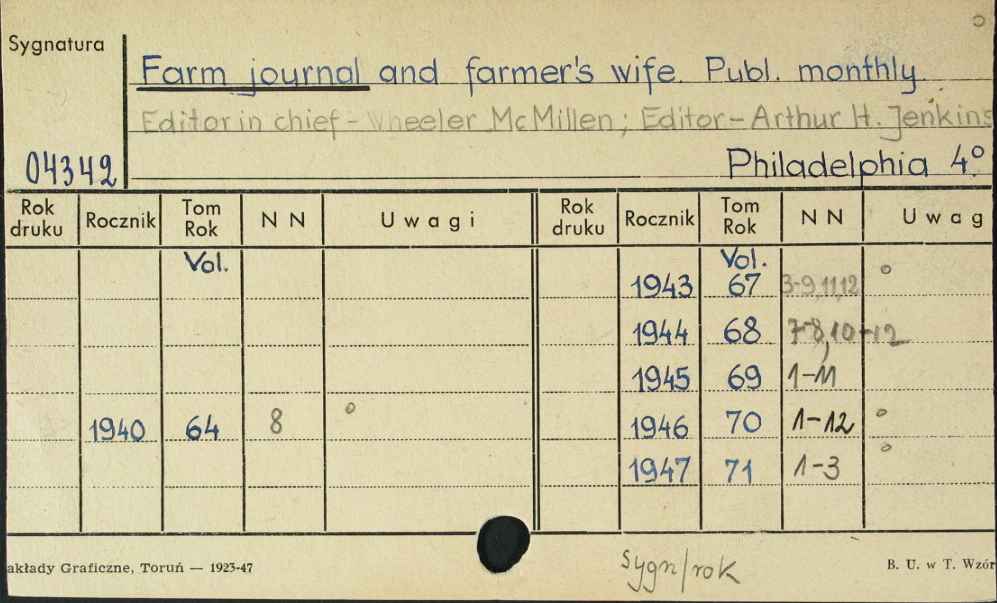 Sygnatura
Farm journal and farmer's wife. Publ. monthly.
Editor in chief - Wheeler McMillen; Editor - Arthur H. Jenkins
04342
Philadelphia 4°
Rok druku Rocznik Tom Rok NN Uwagi Rok druku Rocznik Tom Rok NN Uwag
Vol. Vol.
1943 67 3-9,11,12
1944 68 7-8,10-12
1945 69 1-11
1940 64 8 1946 70 1-12
1947 71 1-3
sygn/rok
akłady Graficzne, Toruń — 1923-47 B. U. w T. Wzór